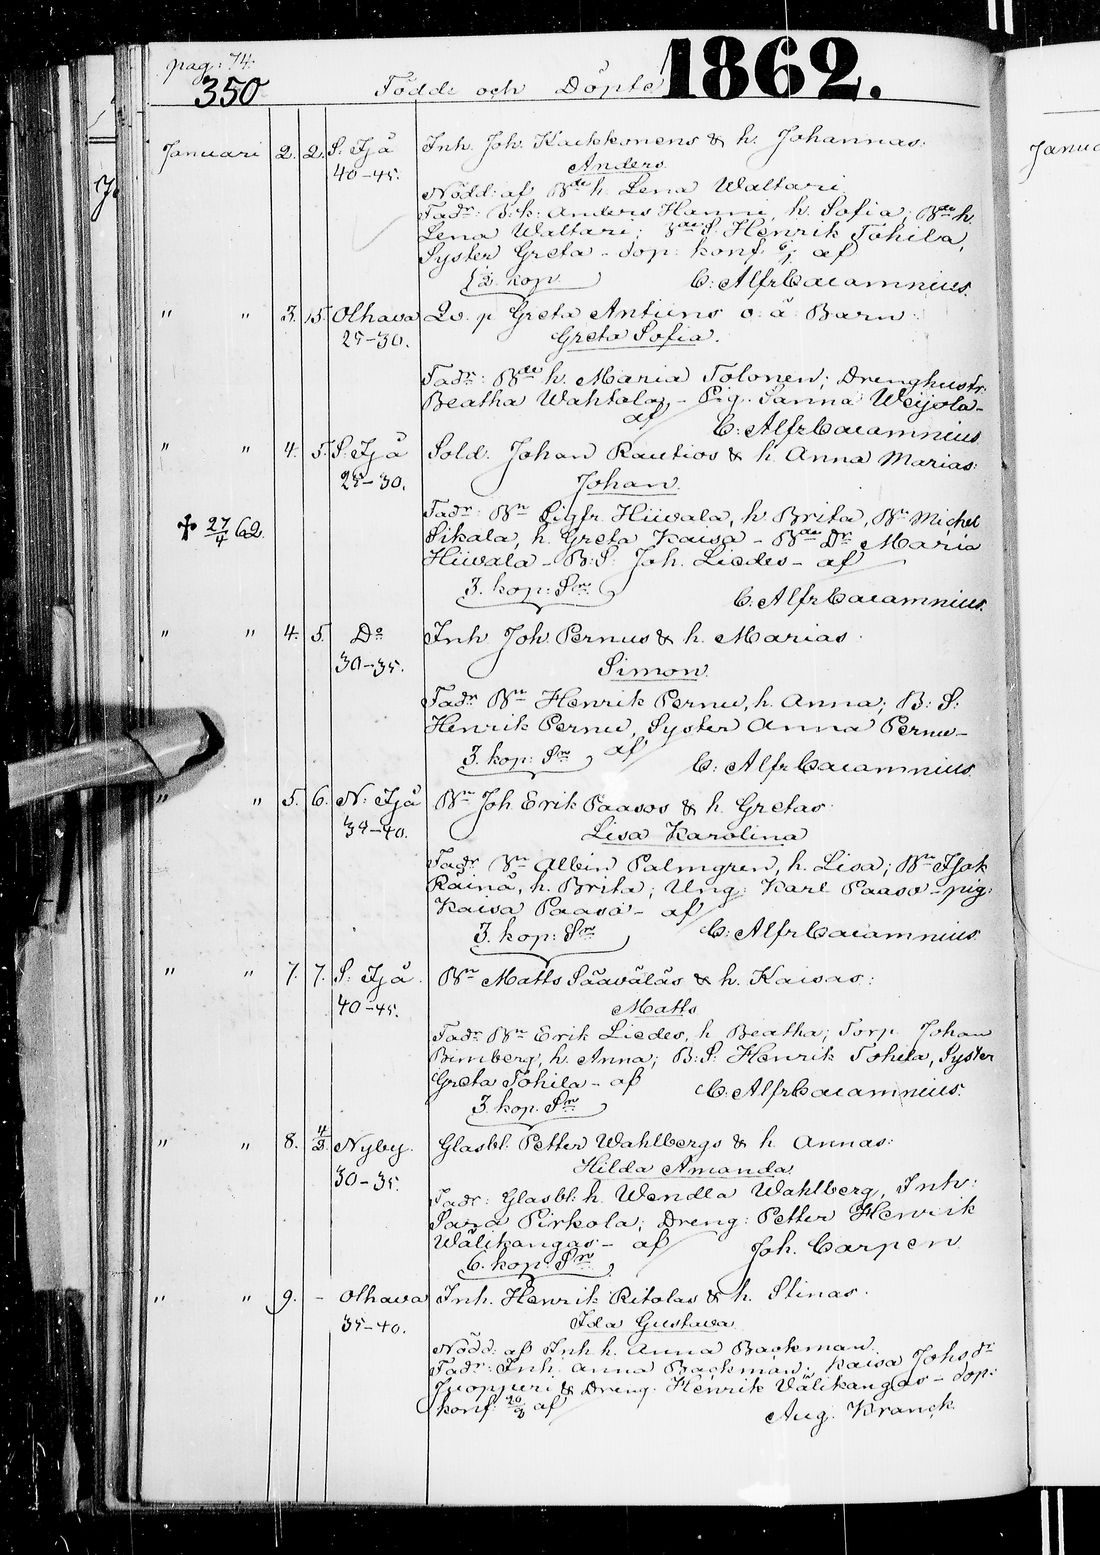 pag: 74.
350
Födde och Döpte 1862.
Januari 2. 2. S. Ijå Inh. Joh. Kackkonens & h. Johannas:
40-45. Anders.
Nödd: af Bde h. Lena Waltari.
Fadr: S: k: Anders Hanni, h. Sofia; Bde h.
Lena Waltari; Henrik Tohila,
Syster Greta - dop: konf. 6/1 af
12. kop. C: Alfr Cajamnius.
" " 3. 15. Olhava Qv. p Greta Antiins o: ä: Barn:
25-30. Greta Sofia.
Fadr: Bde h. Maria Tolonen; Drenghustr:
Beatha Wahtola, - Pig. Sanna Weijola -
af C: Alfr Cajamnius
" " 4. 5. S. Ijå Sold. Johan Rautios & h. Anna Marias:
25-30. Johan.
✝ 27/4 62. Fadr: Bn Sigfr. Hiivala, h. Brita, Bn Michel
Sikala, h. Greta Kaisa - Bde Dr Maria
Hiivala - B: S: Joh. Liedes - af
3. kop: Smr C. Alfr Cajamnius.
" " 4. 5. Do Inh Joh. Pernus & h. Marias:
30-35. Simon.
Fadr Bn Henrik Pernu, h. Anna; B: S:
Henrik Pernu, Syster Anna Pernu -
3. kop: Smr af C: Alfr Cajamnius.
" " 5. 6. N. Ijå Bn Joh Erik Paasos & h. Gretas:
35-40. Lisa Karolina
Fadr Bn Albin Palmgren, h. Lisa; Bn Isak
Räinä, h. Brita; Ung: Karl Paaso - pig:
Kaisa Paaso - af
3. kop: Smr C: Alfr Cajamnius.
" " 7. 7. S. Ijå Bn Matts Sääväläs & h. Kaisas:
40-45. Matts
Fadr Bn Erik Liedes, h Beatha; Torp. Johan
Bimberg, h. Anna; B: S: Henrik Tohila, Syster
Greta Tohila - af C. Alfr Cajamnius.
3. kop. Smr
" " 8. 4/2 Nyby. Glasbl. Petter Wahlbergs & h Annas:
30-35. Hilda Amanda.
Fadr: Glasbl: h. Wendla Wahlberg, Inh:
Sara Pirkola; Dreng: Petter Henrik
Wälikangas - af Joh. Carpen
6. kop. Smr
" " 9. - Olhava Inh. Henrik Ritolas & h. Stinas.
35-40. Ida Gustava
Nödd: af Inh h. Anna Backman.
Fadr: Inh. Anna Backman, Kaisa Johsdr
& Dreng. Henrik Välikangas - dop:
konf: af
Aug. Kranck